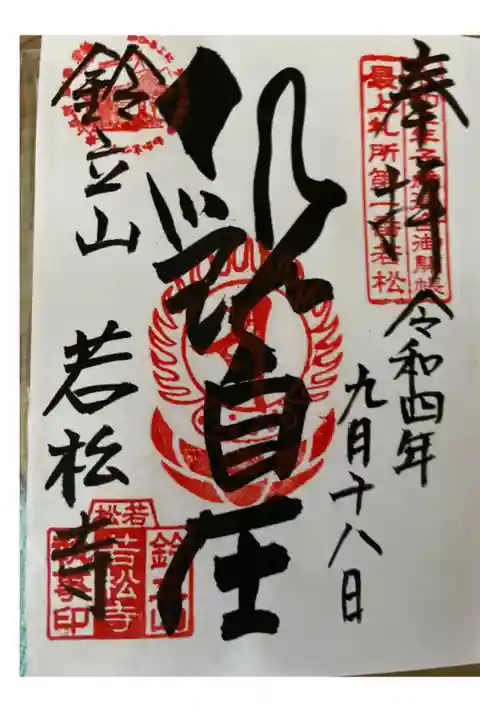 奉拝
令和四年
九月十八日
最上札所第一番若松
自在
鈴立山
若松寺
若松
鈴立山
若松寺